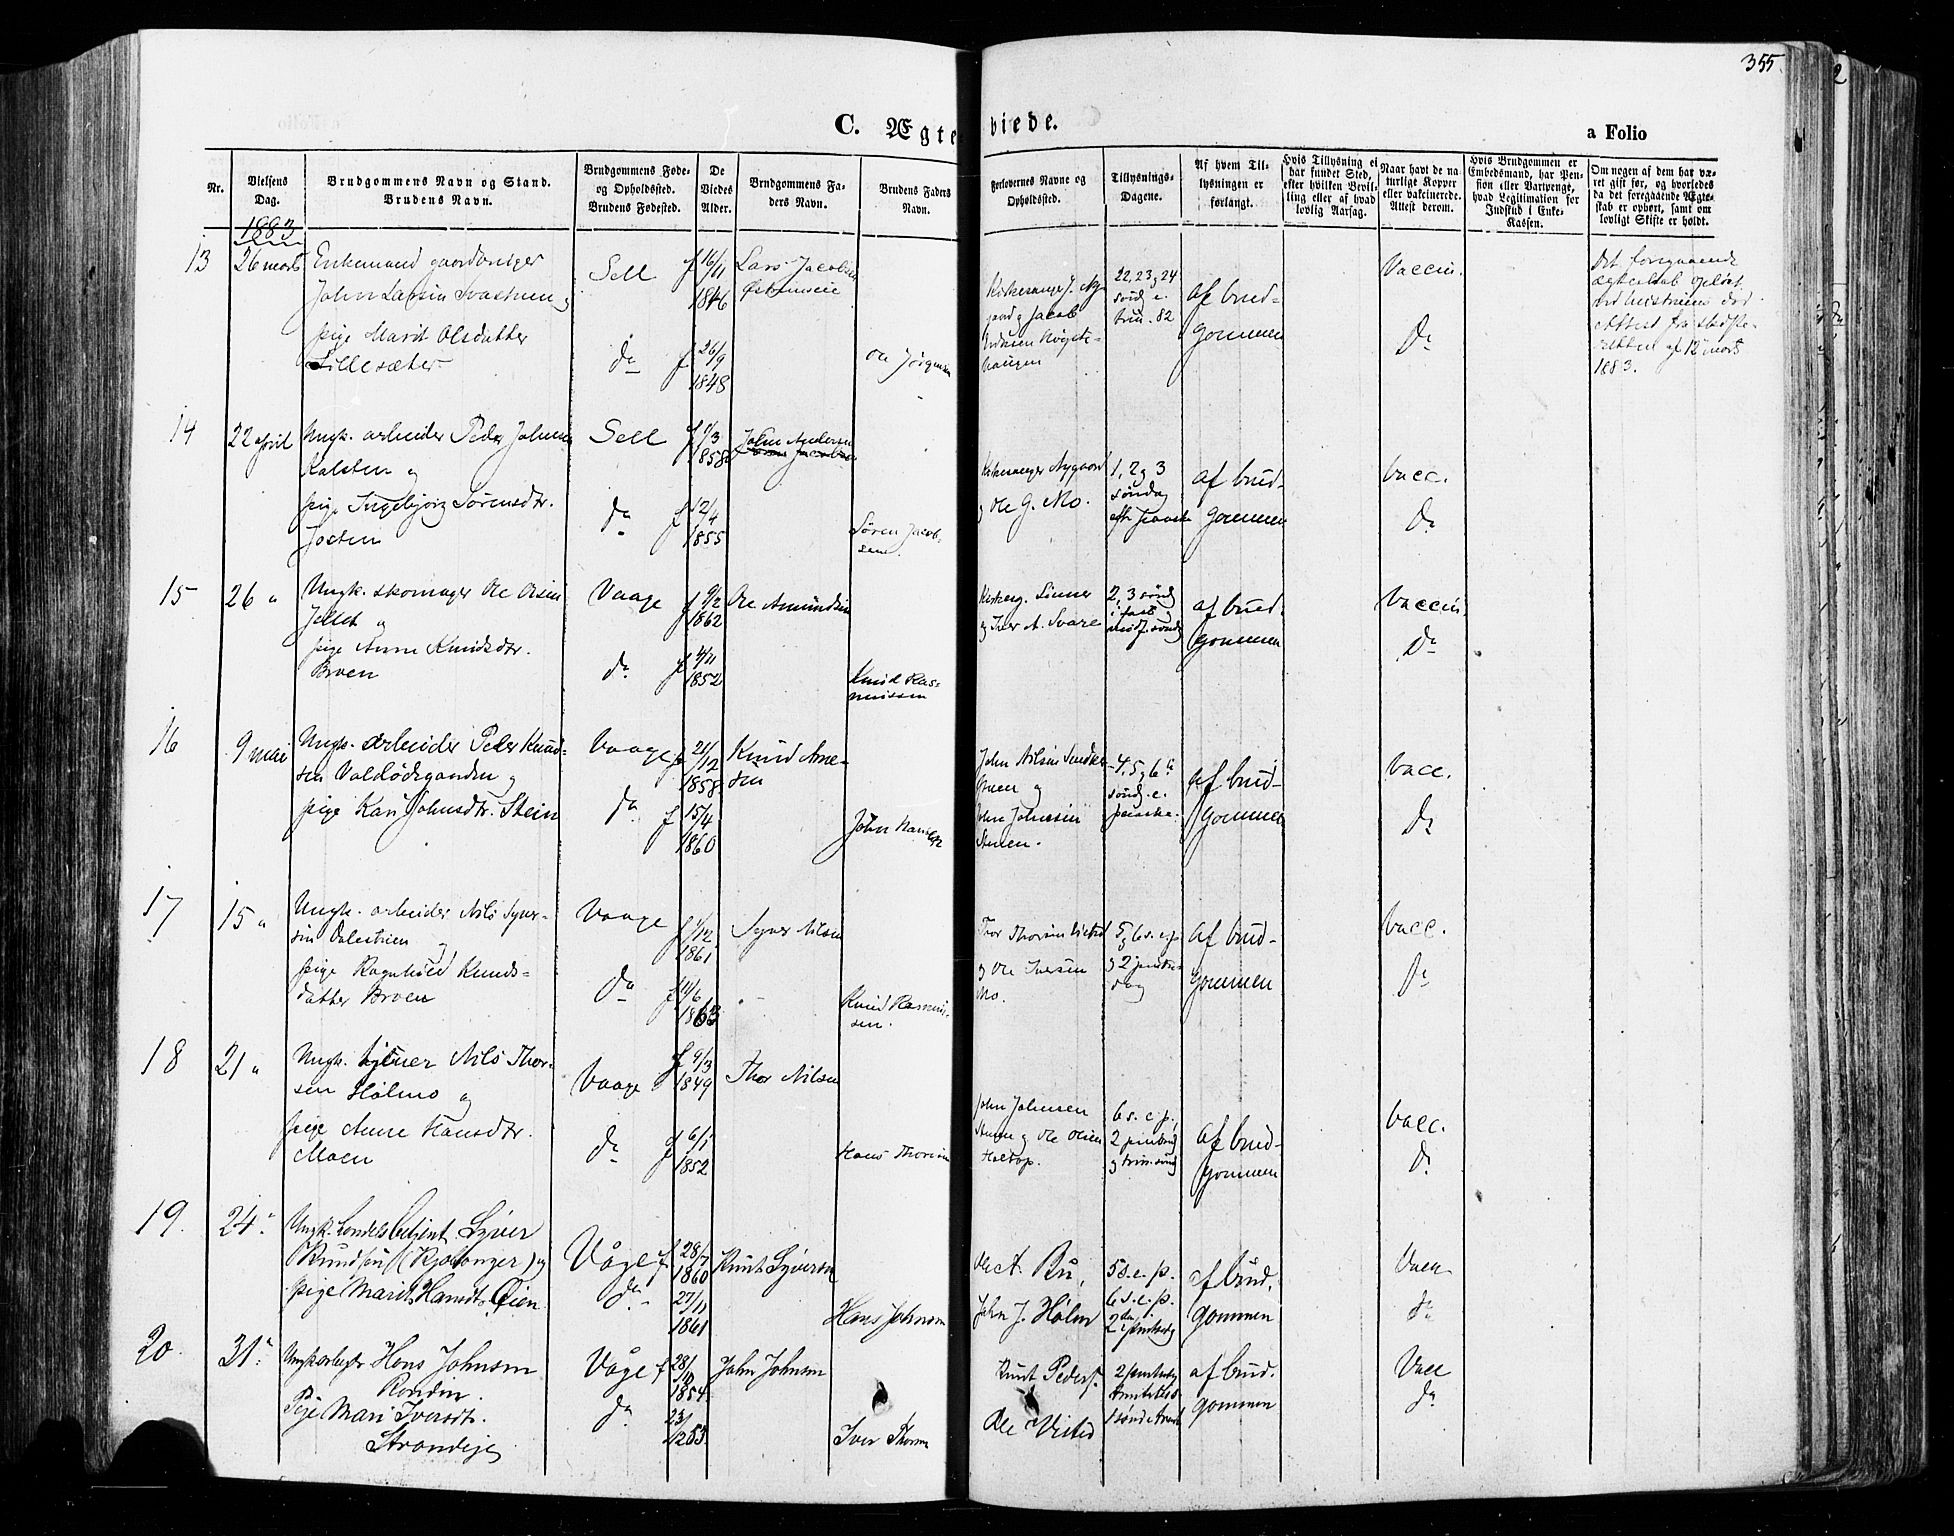 355
C. Ægteviede.
a Folio
Nr.
Vielsens Dag.
Brudgommens Navn og Stand.
Brudens Navn.
Brudgommens Føde-
og Opholdsted.
Brudens Fødested.
De Viedes Alder.
Brudgommens Fa-
ders Navn.
Brudens Faders
Navn.
Forlovernes Navne og
Opholdssted.
Tillysnings-
Dagene.
Af hvem Til-
lysningen er
forlangt.
Hvis Tillysning ei
har fundet Sted,
efter hvilken Bevil-
ling eller af hvad
lovlig Aarsag.
Naar havt de na-
turlige Kopper
eller vakcinerede.
Attest derom.
Hvis Brudgommen er
Embedsmand, har Pen-
sion eller Vartpenge,
hvad Legitimation for
Indskud i Enke-
Kassen.
Om nogen af dem har væ-
ret gift før, og hvorledes
da det foregaaende Ægte-
skab er ophørt, samt om
lovligt Skifte er holdt.
1883
13
26 marts
Enkemand gaardbruger
John Larsen
og
pige Marit Olsdatter
Lillesæter
Sell
f 16/11
1846
Lars Jacobsen
do
f 26/9
1848
Ole Jørgensen
Kirkesanger J. Ny-
gaard og Jacob
22, 23 og 24
sønd e.
trin. 82
af brud-
gommen
Vaccin.
Do
Det foregaaende
ægteskab opløst
ved hustruens død.
Attest fra skifte-
retten af 12 marts
1883.
14
22 april
Ungk. arbeider Peder Johnsen
Kalsten og
pige Ingebjørg Sørensdtr.
Sell
f 1/3
1858
John Andersen
do
f 12/4
1855
Søren Jacob-
sen.
Kirkesanger Nygaard
og Ole G. Mo.
1, 2 og 3
søndag
eft. paaske
af brud-
gommen
Vacc.
Do
15
26 "
Ungk. skomager Ole Olsen
og
pige Anne Knudsdtr.
Broen
Vaage
f 9/2
1862
Ole Amundsen
do
f 4/11
1852
Knud Ras-
mussen
Kirkesg. Sinner
og Iver A. Svare
2, 3 sønd
i fast og
midf. sønd
af brud-
gommen
Vaccin.
Do
16
9 mai
Ungk. arbeider Peder Knud-
sen
og
pige Kari Johnsdtr. Stein
Vaage
f 21/12
1858
Knud Arne-
sen
do
f 15/4
1860
John Hansen
John Nilsen
og
John Johnsen
Stuen.
4, 5 og 6te
sønd. e.
paaske.
af brud-
gommen
Vacc.
Do
17
15 "
Ungk. arbeider Nils Syver-
sen
og
pige Ragnhild Knuds-
datter Broen
Vaage
f 1/12
1861
Syver Nilsen
do
f 11/6
1863
Knud Rasmus-
sen.
Thor Thorsen Visted
og Ole Iversen
Mo.
5 og 6 s. e. p.
og 2 pintse-
dag
af brud-
gommen
Vacc.
Do
18
21 "
Ungk. tjener Nils Thor-
sen Holmo og
pige Anne Hansdtr.
Moen
Vaage
f 9/3
1849
Thor Nilsen
do
f 6/1
1852
Hans Thorsen
John Johnsen
Stuen og Ole Olsen
6 s. e. p.,
2 pintsdg
og trin. sønd
af brud-
gommen
Vacc.
Do
19.
24 "
Ungk. handelsbetjent Syver
Knudsen (Kjolonger) og
pige Marit Hansdtr. Øien
Våge
f 28/7
1860
Knut Syversen
do
27/11
1861
Hans Johnsen
Ole A. Bu,
John J. Holm
5 s. e. p.
6 s. e. p.
2den pintsedg
af brud-
gommen
Vacc
do
20.
31 "
Ungk. arbeider Hans Johnsen
Rondin.
Pige Mari Iversdtr.
Våge
f 28/10
1854.
John Johnsen
do
23/12 53.
Iver Thorsen
Knut Peders.
Ole Visted
2 pintsedg
af brud-
gommen
Vacc
do